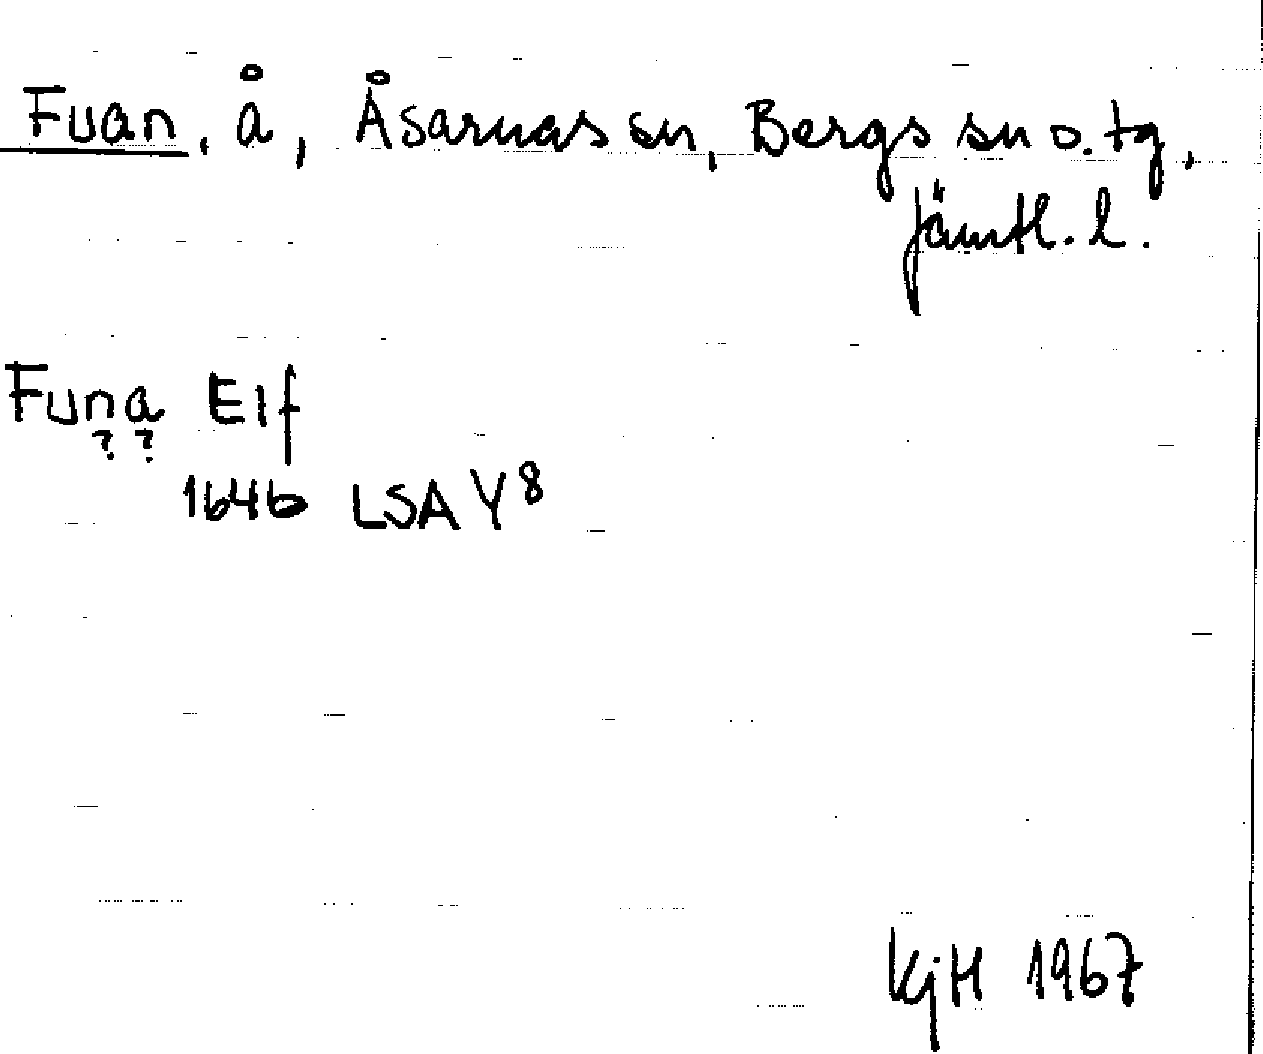 Fuan, å, Åsarnas sn, Bergs sn o. tg,
Jämtl. l.
Funa Elf
? ?
1646 LSA Y8
KjH 1967